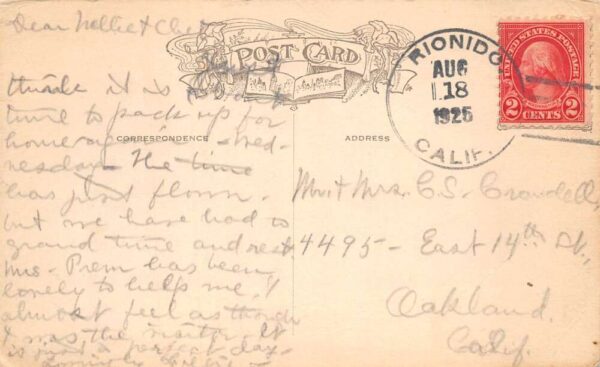 Dear Nellie & Chet
think it is
time to pack up for
home again - Wed-
nesday. The time
has just flown.
but we have had so
grand time and rest
Mrs - Prem has been
lovely to help me. I
almost feel as though
I was the visitor. It
is just a perfect day -
POST CARD
CORRESPONDENCE
ADDRESS
RIONIDO
AUG
18
1925
CALIF.
UNITED STATES POSTAGE
2 CENTS 2
Mr. & Mrs. C.S. Crandell,
4495 - East 14th St.,
Oakland.
Calif.